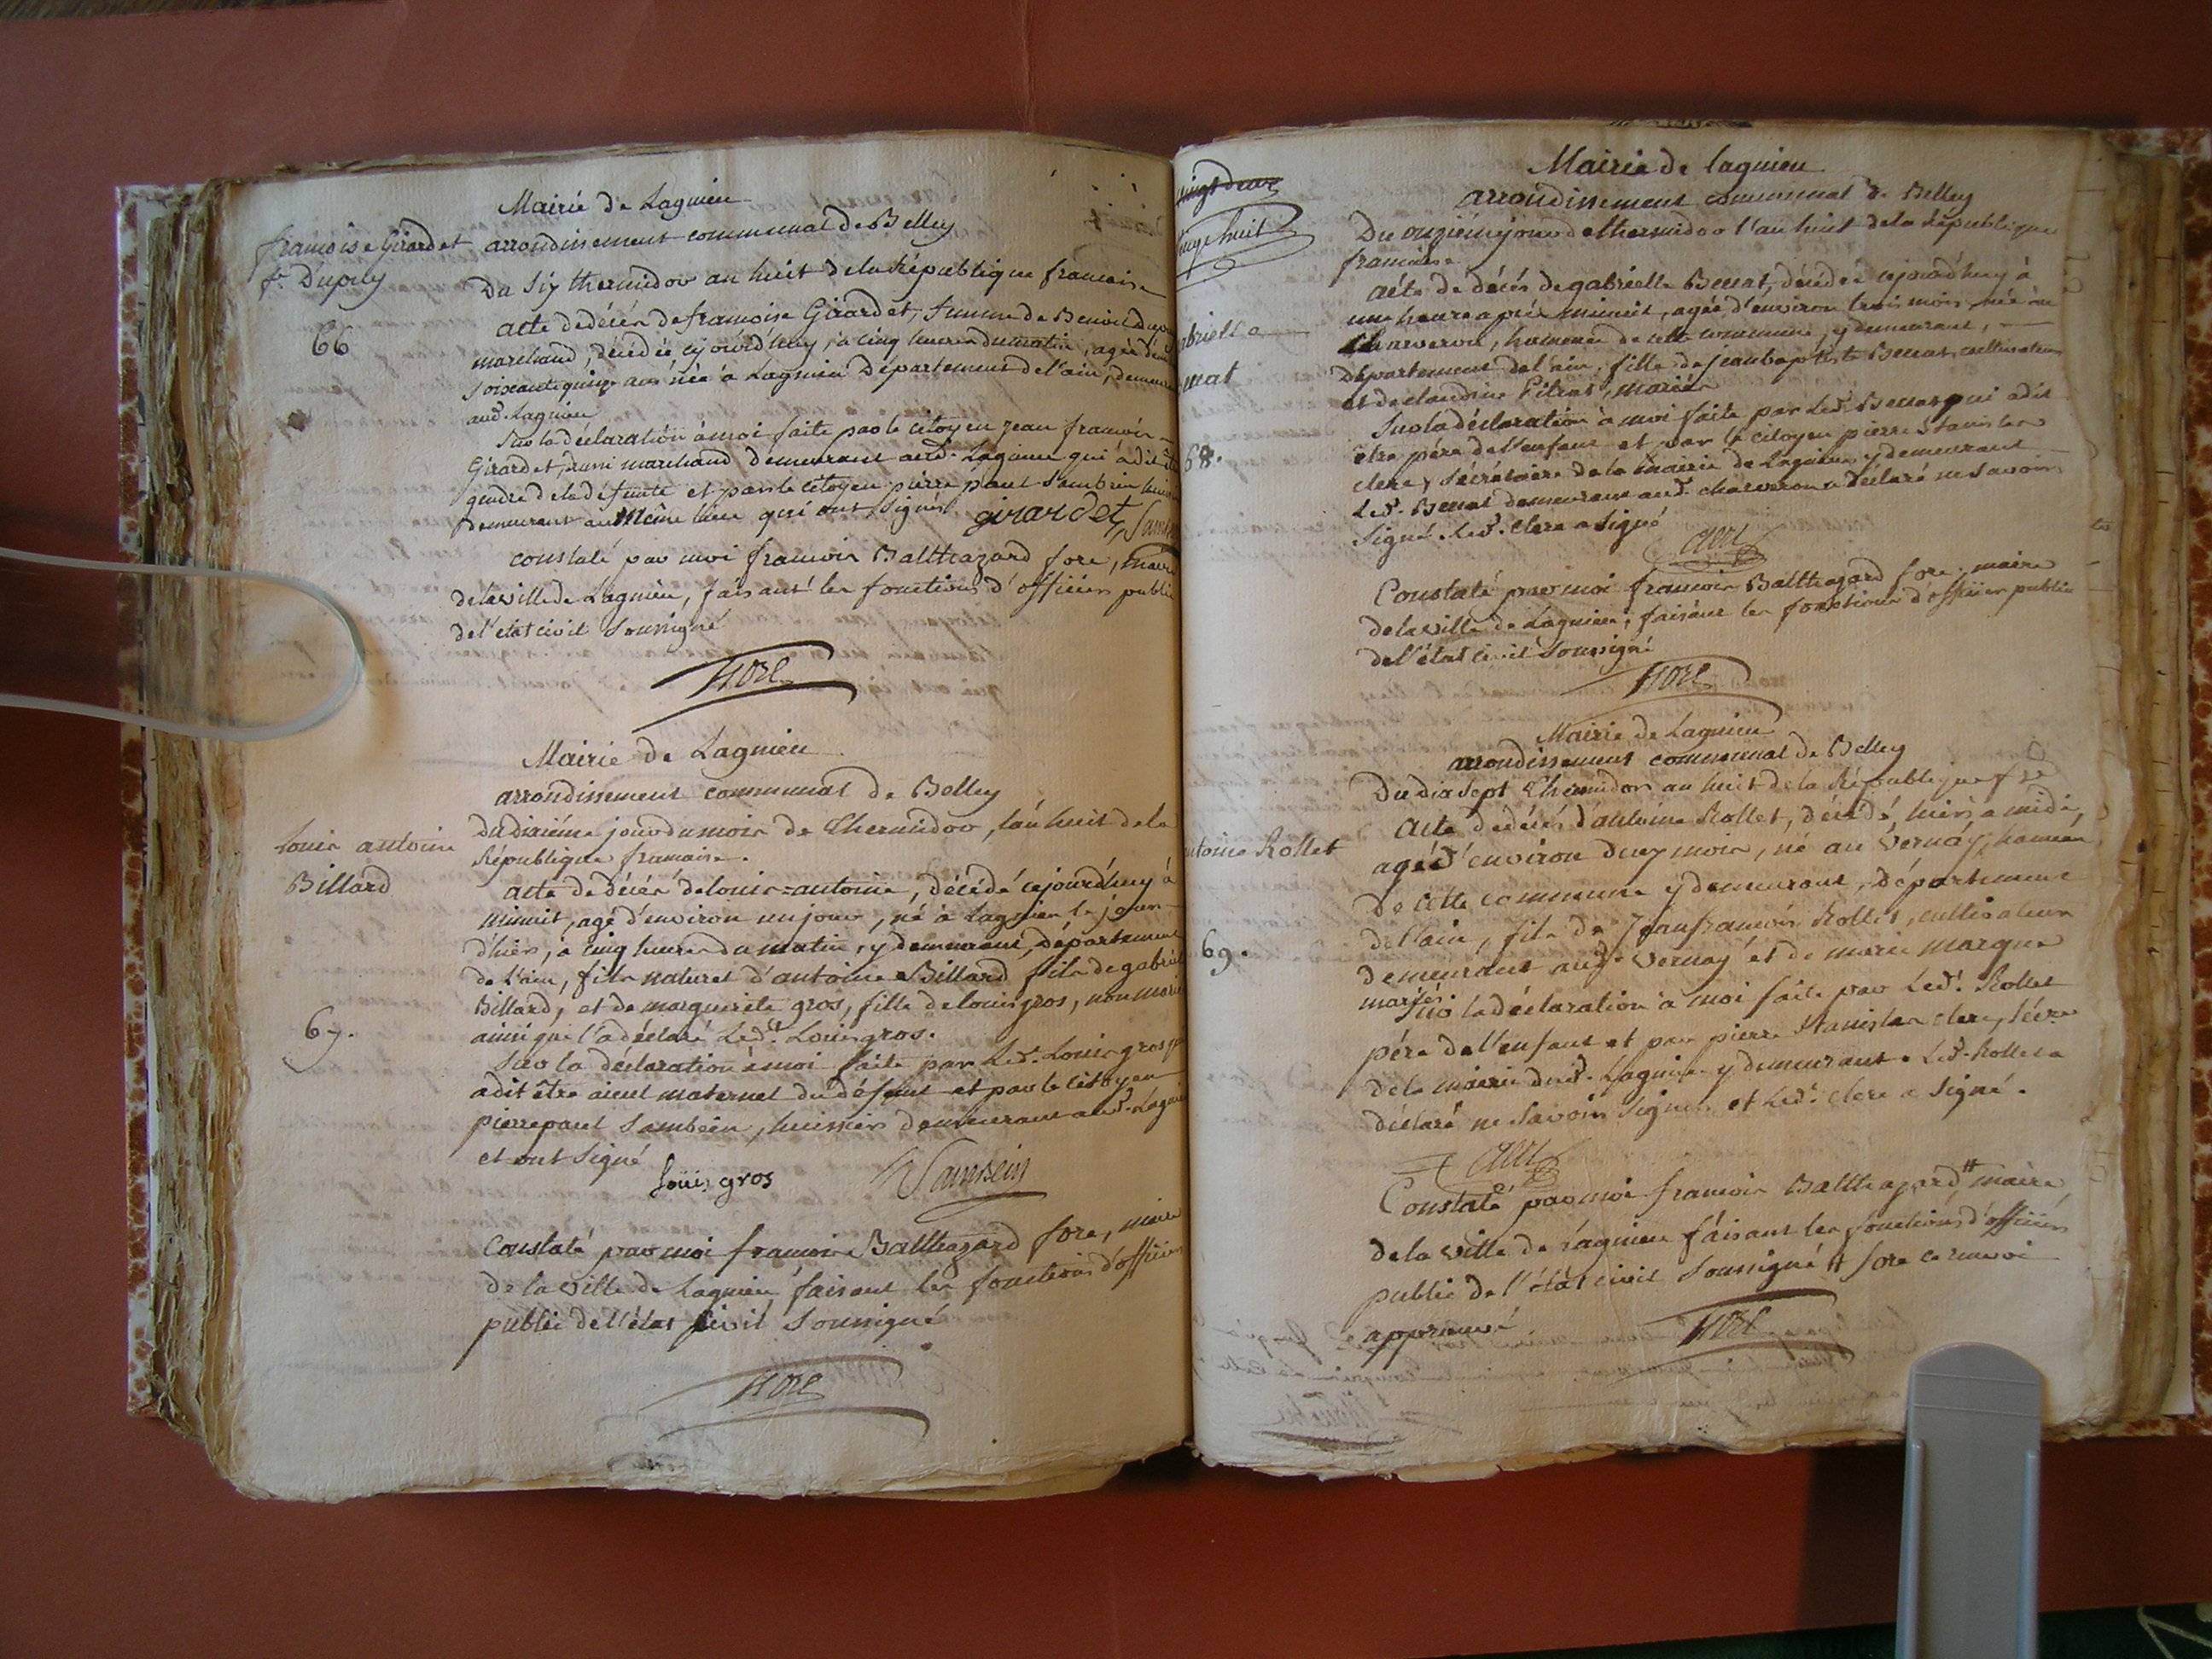 Mairie de Lagnieu
françoise Girardet
arrondissement communal de Belley
fe. Dupuy
Du six thermidor an huit de la République francaise
66
acte de décès de françoise Girardet, femme de Benoit Dupuy
marchand, décédée cejourd'huy, à cinq heures du matin, agée d'env
soixante quinze ans née à Lagnieu Département de l'ain, demeur
aud. Lagnieu
Sur la déclaration à moi faite par le citoyen jean françois
Girardet, aussi marchand demeurant aud. Lagnieu qui à dit être
gendre de la défunte et par le citoyen pierre paul Sambein huissier
Demeurant au Même lieu qui ont signés girardet, Sam
constaté par moi francois Balthazard fore, maire
de la ville de Lagnieu, faisant les fonctions d'officier public
de l'état civil soussigné
fore
Mairie de Lagnieu
arrondissement communal de Belley
louis antoine
Du dixiéme jour du mois de Thermidor, l'an huit de la
République francaise.
Billard
acte de décès de louis=antoine, décédé cejourd'huy à
minuit, agé d'environ un jour, né à Lagnieu le jour
d'hier, à cinq heures du matin, y demeurant, département
de l'ain, fils naturel d'antoine Billard fils de gabriel
Billard, et de marguerite gros, fille de louis gros, non mariés
67.
ainsi que l'a déclaré Led.t Louis gros.
Sur la déclaration à moi faite par Led. Louis gros qui
a dit être aieul maternel du défunt et par le citoyen
pierre paul Sambein, huissier demeurant aud. Lagnieu
et ont signé
Loüis gros Sambein
Constaté par moi francois Balthazard fore, maire
de la ville de Lagnieu faisant les fonctions d'officier
public de l'état civil soussigné
fore
vingt deux
vingt huit
Mairie de lagnieu
arrondissement communal de Belley
Du onziéme jour de thermidor l'an huit de la République
francaise
acte de décés de gabrielle Benat, décédée cejourd'huy à
une heure après minuit, agée d'environ trois mois, née au
abrielle
Charveron, hameau de cette commune, y demeurant,
enat
Département de l'ain, fille de jean baptiste Benat, cultivateur
et de claudine Pitiot, mariés
Sur la déclaration à moi faite par Led. Benat qui a dit
68.
être père de l'enfant et par le citoyen pierre Stanislas
clerc, sécrétaire de la mairie de Lagnieu y demeurant
Led. Benat demeurant aud. charveron a déclaré ne savoir
signé. Led. clerc a signé
clerc
Constaté par moi francois Balthazard fore, maire
de la ville de Lagnieu, faisant les fonctions d'officier public
de l'état civil soussigné
fore
Mairie de Lagnieu
arrondissement communal de Belley
Du dix sept Thermidor an huit de la République fse
Acte de décès d'antoine Rollet, décédé, hier à midi,
ntoine Rollet
agé d'environ deux mois, né au vernay, hameau
de cette commune y demeurant, Département
de l'ain, fils de Jean francois Rollet, cultivateur
69.
demeurant aud. vernay et de marie margue
mariés.
Sur la déclaration à moi faite par Led. Rollet
pére de l'enfant et par pierre Stanislas clerc, sécre
de la mairie dud. Lagnieu y demeurant. Led. Rollet a
déclaré ne savoir signer et Led. clerc a signé.
clerc
Constaté par moi francois Balthazard # maire
de la ville de Lagnieu faisant les fonctions d'officier
public de l'état civil soussigné # fore ce renvoi
approuvé
fore